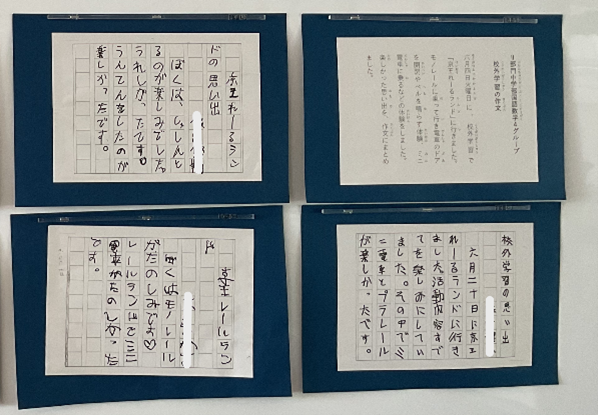 部門中学部国語数学4グループ
校外学習の作文
六月四日火曜日に、校外学習で
「京王れーるランド」に行きました。
モノレールに乗って行き電車のドア
を開閉やベルを鳴らす体験、ミニ
電車に乗るなどの体験をしました。
楽しかった思い出を、作文にまとめ
ました。
京王れーるラン
ドの思い出
ぼくは、しゃしんと
るのが楽しみでした。
うれしかったです。
うんてんをしたのが
楽しかったです。
校外学習の思い出
六月二十日に京王
れーるランドに行き
ました。活動内容すべ
てを楽しみにしてい
ました。その中でミ
ニ電車とプラレール
が楽しかったです。
京王レールラン
ド
ぼくはモノレール
がたのしみです♡
レールランドでミニ
電車がたのしかった
です。